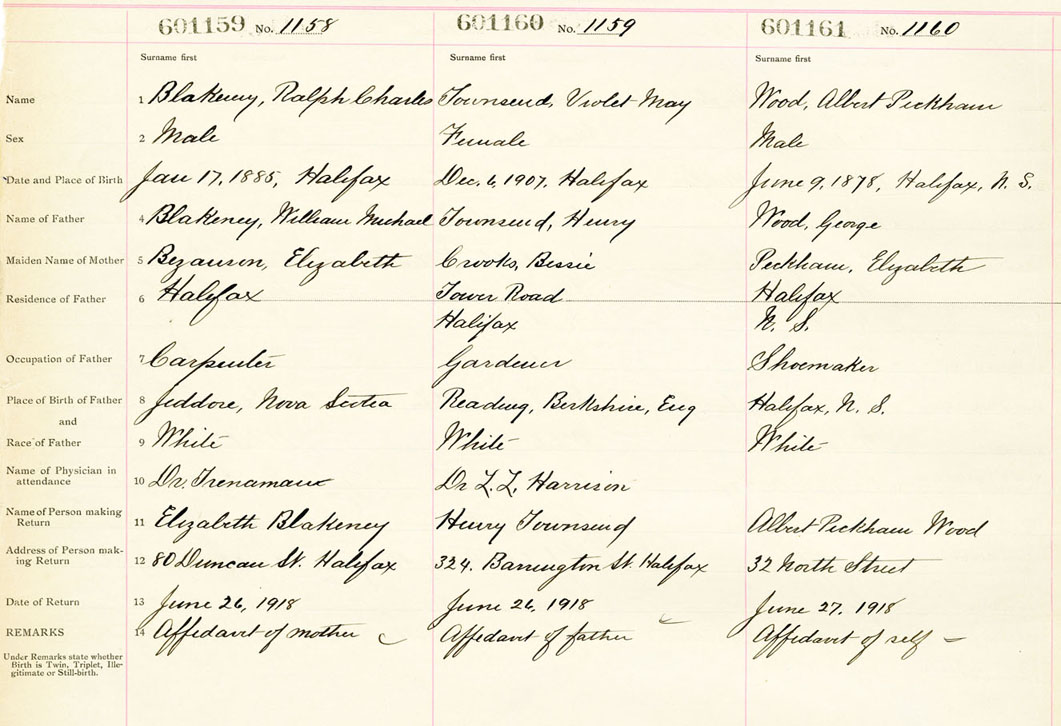 601159 No. 1158 601160 No. 1159 601161 No. 1160
Surname first Surname first Surname first
Name 1 Blakeney, Ralph Charles Townsend, Violet May Wood, Albert Peckham
Sex 2 Male Female Male
Date and Place of Birth Jan 17, 1885, Halifax Dec. 6, 1907, Halifax June 9, 1878, Halifax, N. S.
Name of Father 4 Blakeney, William Michael Townsend, Henry Wood, George
Maiden Name of Mother 5 Bezanson, Elizabeth Crooks, Bessie Peckham, Elizabeth
Residence of Father 6 Halifax Tower Road Halifax
Halifax N. S.
Occupation of Father 7 Carpenter Gardener Shoemaker
Place of Birth of Father 8 Jeddore, Nova Scotia Reading, Berkshire, Eng Halifax, N. S.
and
Race of Father 9 White White White
Name of Physician in
attendance 10 Dr. Trenaman Dr L. L. Harrison
Name of Person making
Return 11 Elizabeth Blakeney Henry Townsend Albert Peckham Wood
Address of Person mak-
ing Return 12 80 Duncan St. Halifax 324. Barrington St. Halifax 32 North Street
Date of Return 13 June 26, 1918 June 26, 1918 June 27, 1918
REMARKS 14 Affidavit of mother Affidavit of father Affidavit of self
Under Remarks state whether
Birth is Twin, Triplet, Ille-
gitimate or Still-birth.